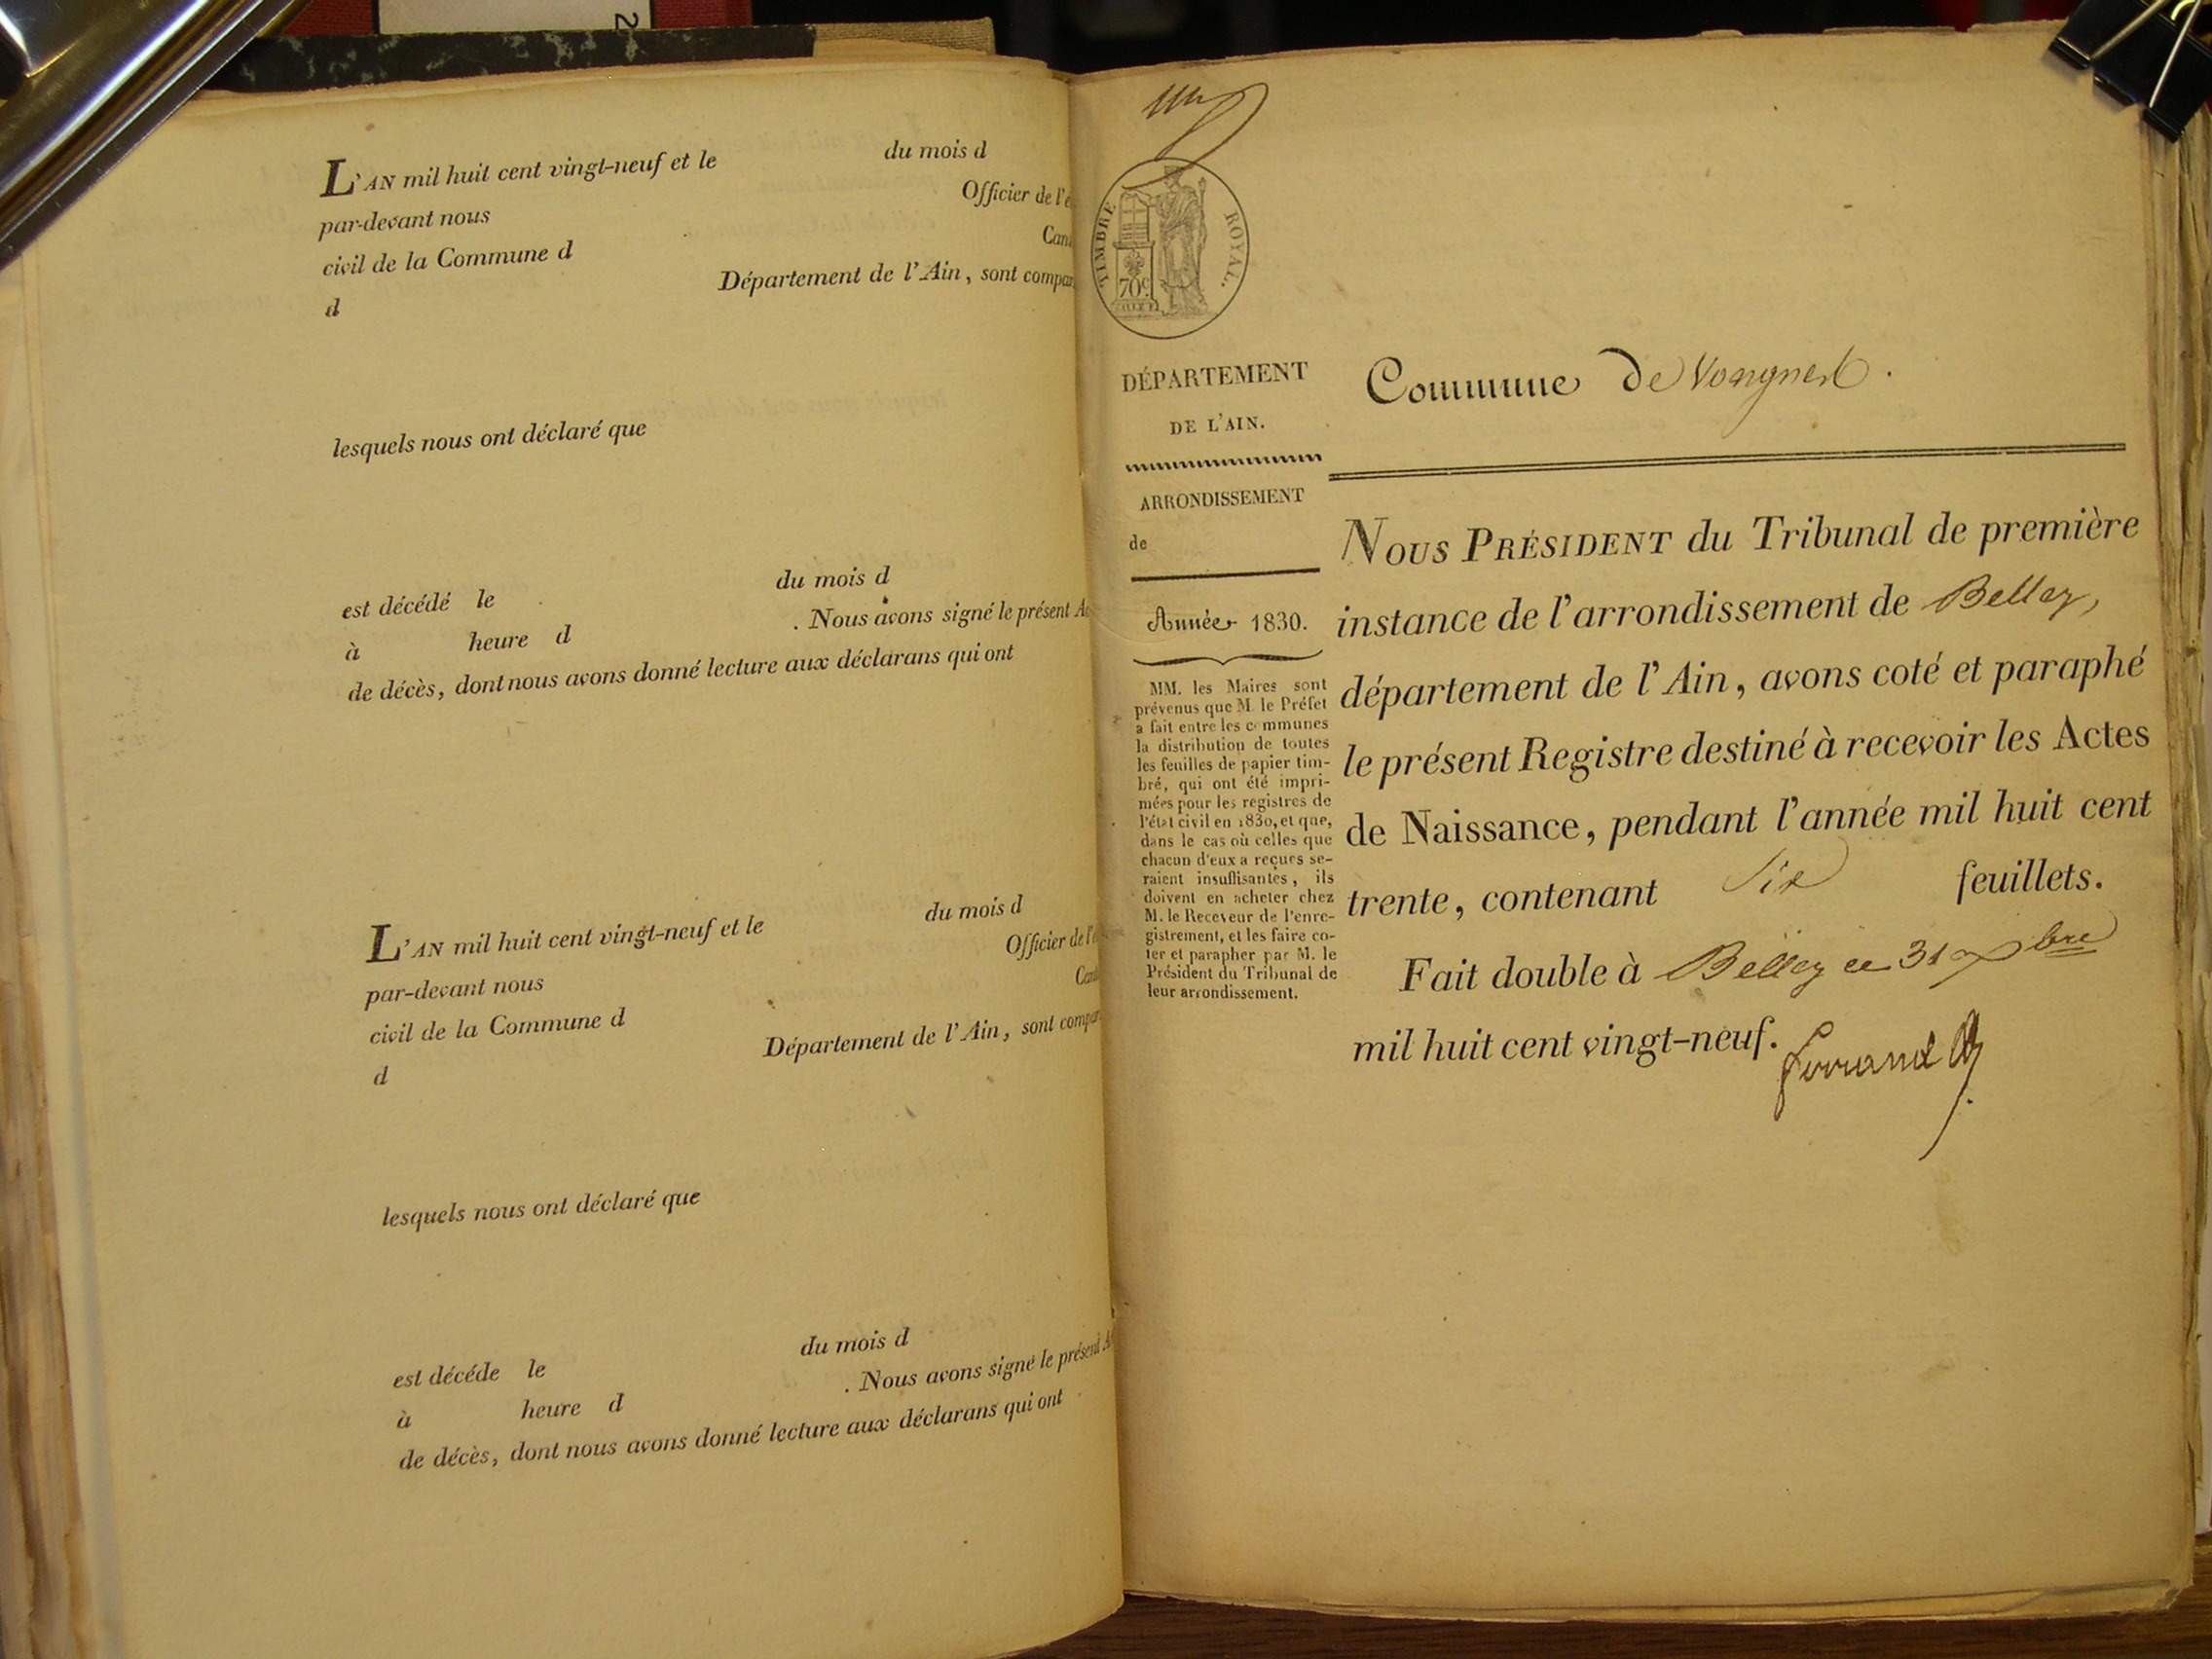 2
L'AN mil huit cent vingt-neuf et le du mois d
par-devant nous Officier de l'é
civil de la Commune d Can
d Département de l'Ain, sont compar
lesquels nous ont déclaré que
est décédé le du mois d
à heure d . Nous avons signé le présent Ac
de décès, dont nous avons donné lecture aux déclarans qui ont
L'AN mil huit cent vingt-neuf et le du mois d
par-devant nous Officier de l'é
civil de la Commune d Can
d Département de l'Ain, sont compar
lesquels nous ont déclaré que
est décéde le du mois d
à heure d . Nous avons signé le présent A
de décès, dont nous avons donné lecture aux déclarans qui ont
TIMBRE ROYAL.
70c
DÉPARTEMENT
DE L'AIN.
ARRONDISSEMENT
de
Année 1830.
MM. les Maires sont
prévenus que M. le Préfet
a fait entre les communes
la distribution de toutes
les feuilles de papier tim-
bré, qui ont été impri-
mées pour les registres de
l'état civil en 1830, et que,
dans le cas où celles que
chacun d'eux a reçues se-
raient insuffisantes, ils
doivent en acheter chez
M. le Receveur de l'enre-
gistrement, et les faire co-
ter et parapher par M. le
Président du Tribunal de
leur arrondissement.
Commune de Vongnes.
NOUS PRÉSIDENT du Tribunal de première
instance de l'arrondissement de Belley,
département de l'Ain, avons coté et paraphé
le présent Registre destiné à recevoir les Actes
de Naissance, pendant l'année mil huit cent
trente, contenant Six feuillets.
Fait double à Belley ce 31 xbre
mil huit cent vingt-neuf.